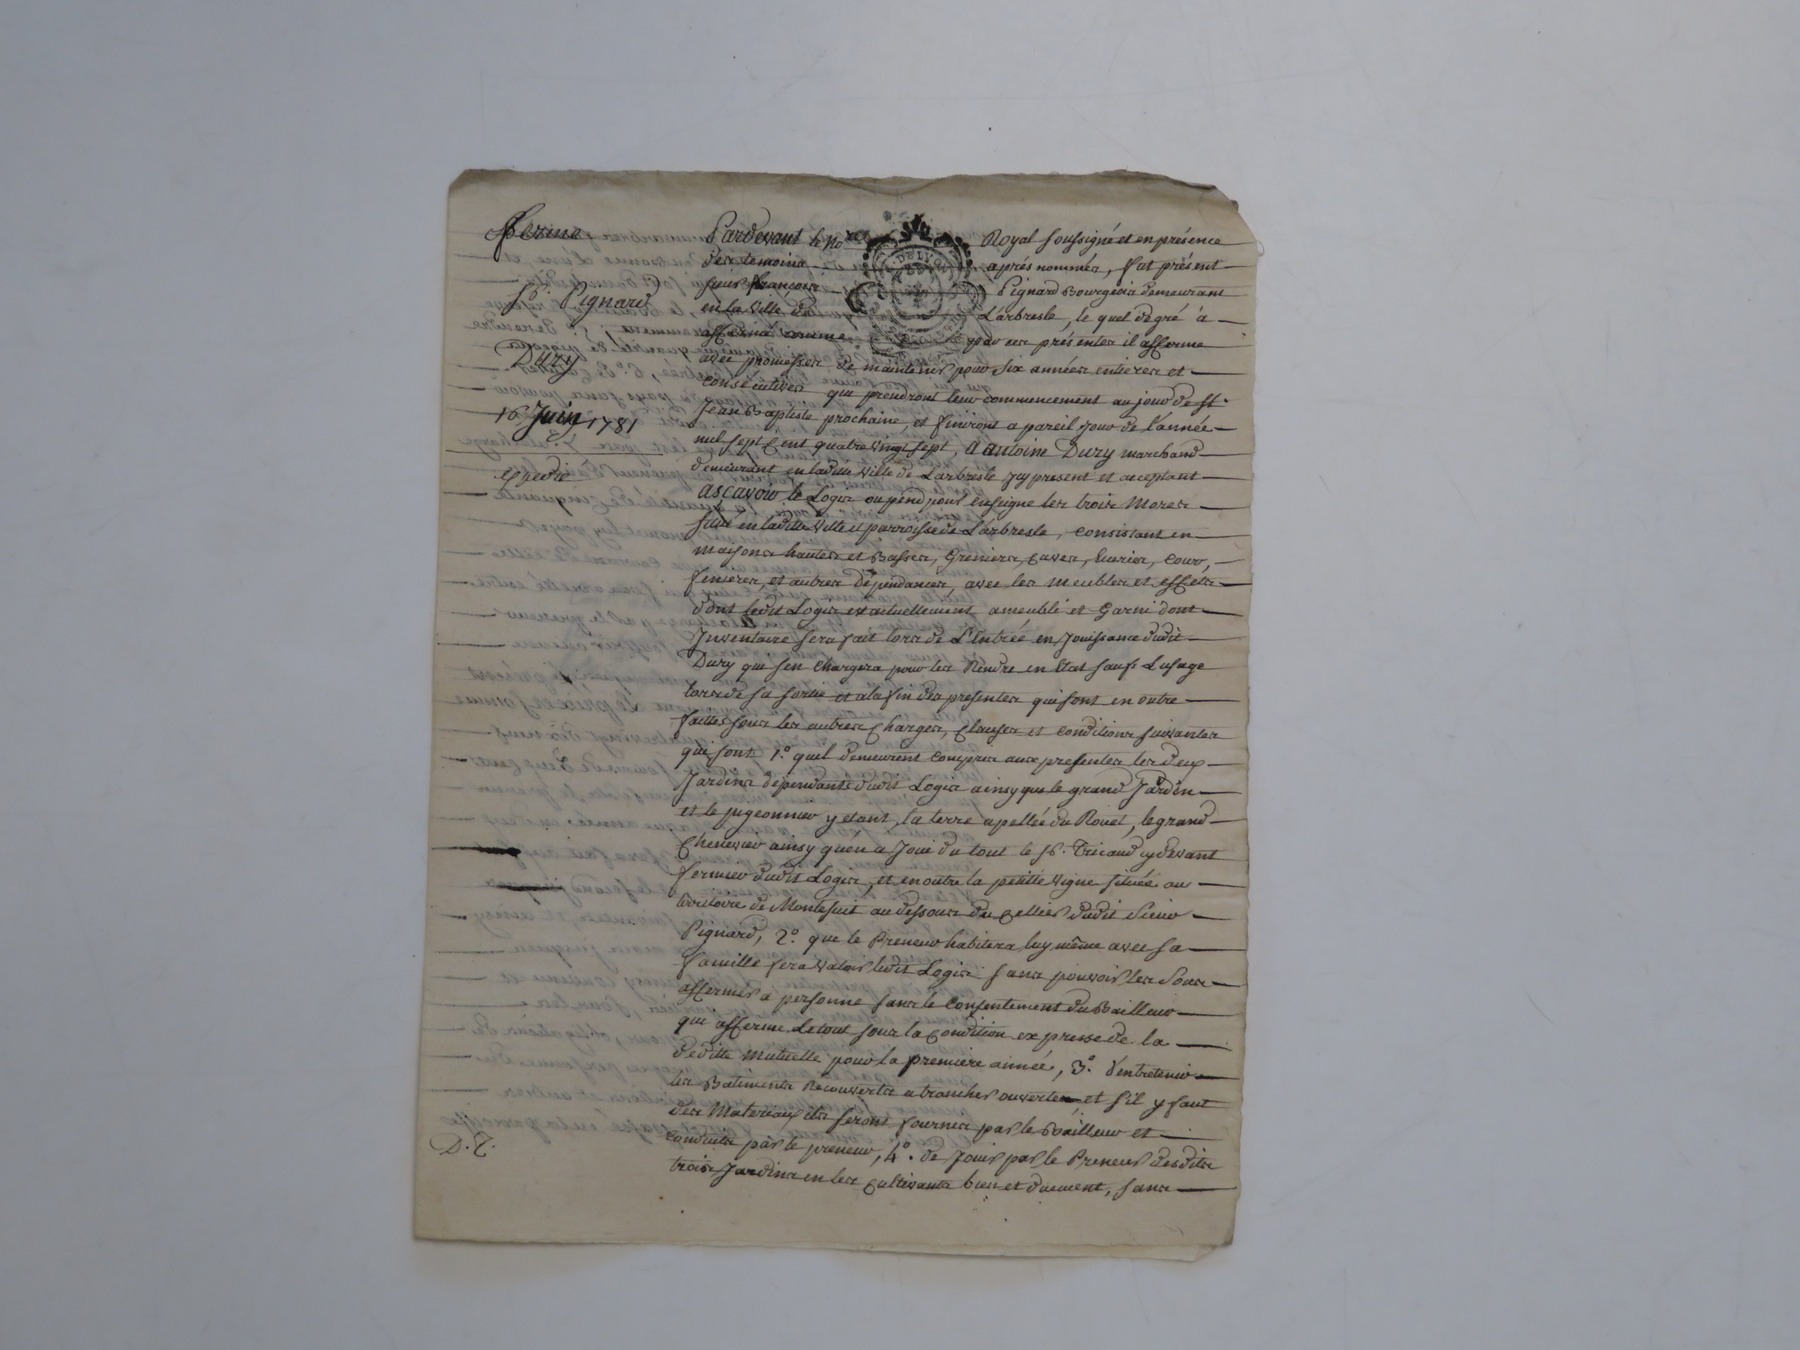 Ferme
Sr. Pignard
Dury
16 Juin 1781
Expedié
Pardevant le No.re Royal soussigné et en présence
des temoins aprés nommés, fut présent
sieur françois Pignard Bourgeois demeurant
en La Ville de L'arbresle, le quel de gré à
affermé comme par ces présentes il afferme
avec promesses de maintenir pour six années entieres et
consécutives qui prendront leur commencement au jour de st.
Jean Baptiste prochaine, et finiront a pareil jour de l'année
mil sept Cent quatre vingt sept, a antoine Dury marchand
demeurant en laditte Ville de L'arbresle icy present et acceptant
ascavoir le Logis ou pend pour enseigne les trois Mores
situé en laditte Ville et parroisse de L'arbresle, consistant en
maisons hautes et Basses, Greniers, Caves, Ecuries, Cour,
fenieres, et autres dépendances, avec les meubles et effets
dont ledit Logis est actuellement ameublé et Garni dont
Inventaire sera fait lors de L'entrée en Jouissance dudit
Dury qui s'en Chargera pour les Rendre en Etat sauf L'usage
lors de sa sortie et a la fin des presentes qui sont en outre
faittes sous les autres Charges, Clauses et conditions suivantes
qui sont 1.° quil demeurent compris aux presentes les deux
Jardins dépendants dudit Logis ainsy que le grand Jardin
et le pigeonnier y etant, la terre apellée du Rouet, le grand
Chenevier ainsy qu'en a Joui du tout le Sr. Tricaud cy devant
fermier dudit Logis, et en outre la petitte Vigne située au
territoire de Montesuit au dessous du Cellier dudit Sieur
Pignard, 2.° que le Preneur habitera luy même avec sa
famille fera Valoir ledit Logis sans pouvoir les Sous
affermer a personne sans le Consentement du Bailleur
qui afferme Le tout sous la Condition expresse de la
deditte Mutuelle pour la premiere année, 3.° d'entretenir
les Batiments Recouverts a tranches ouvertes et s'il y faut
des Materiaux ils seront fournis par le Bailleur et
conduits par le preneur, 4.° de Jouir par le Preneur desdits
trois Jardins en les Cultivants bien et duement, sans
D. T.